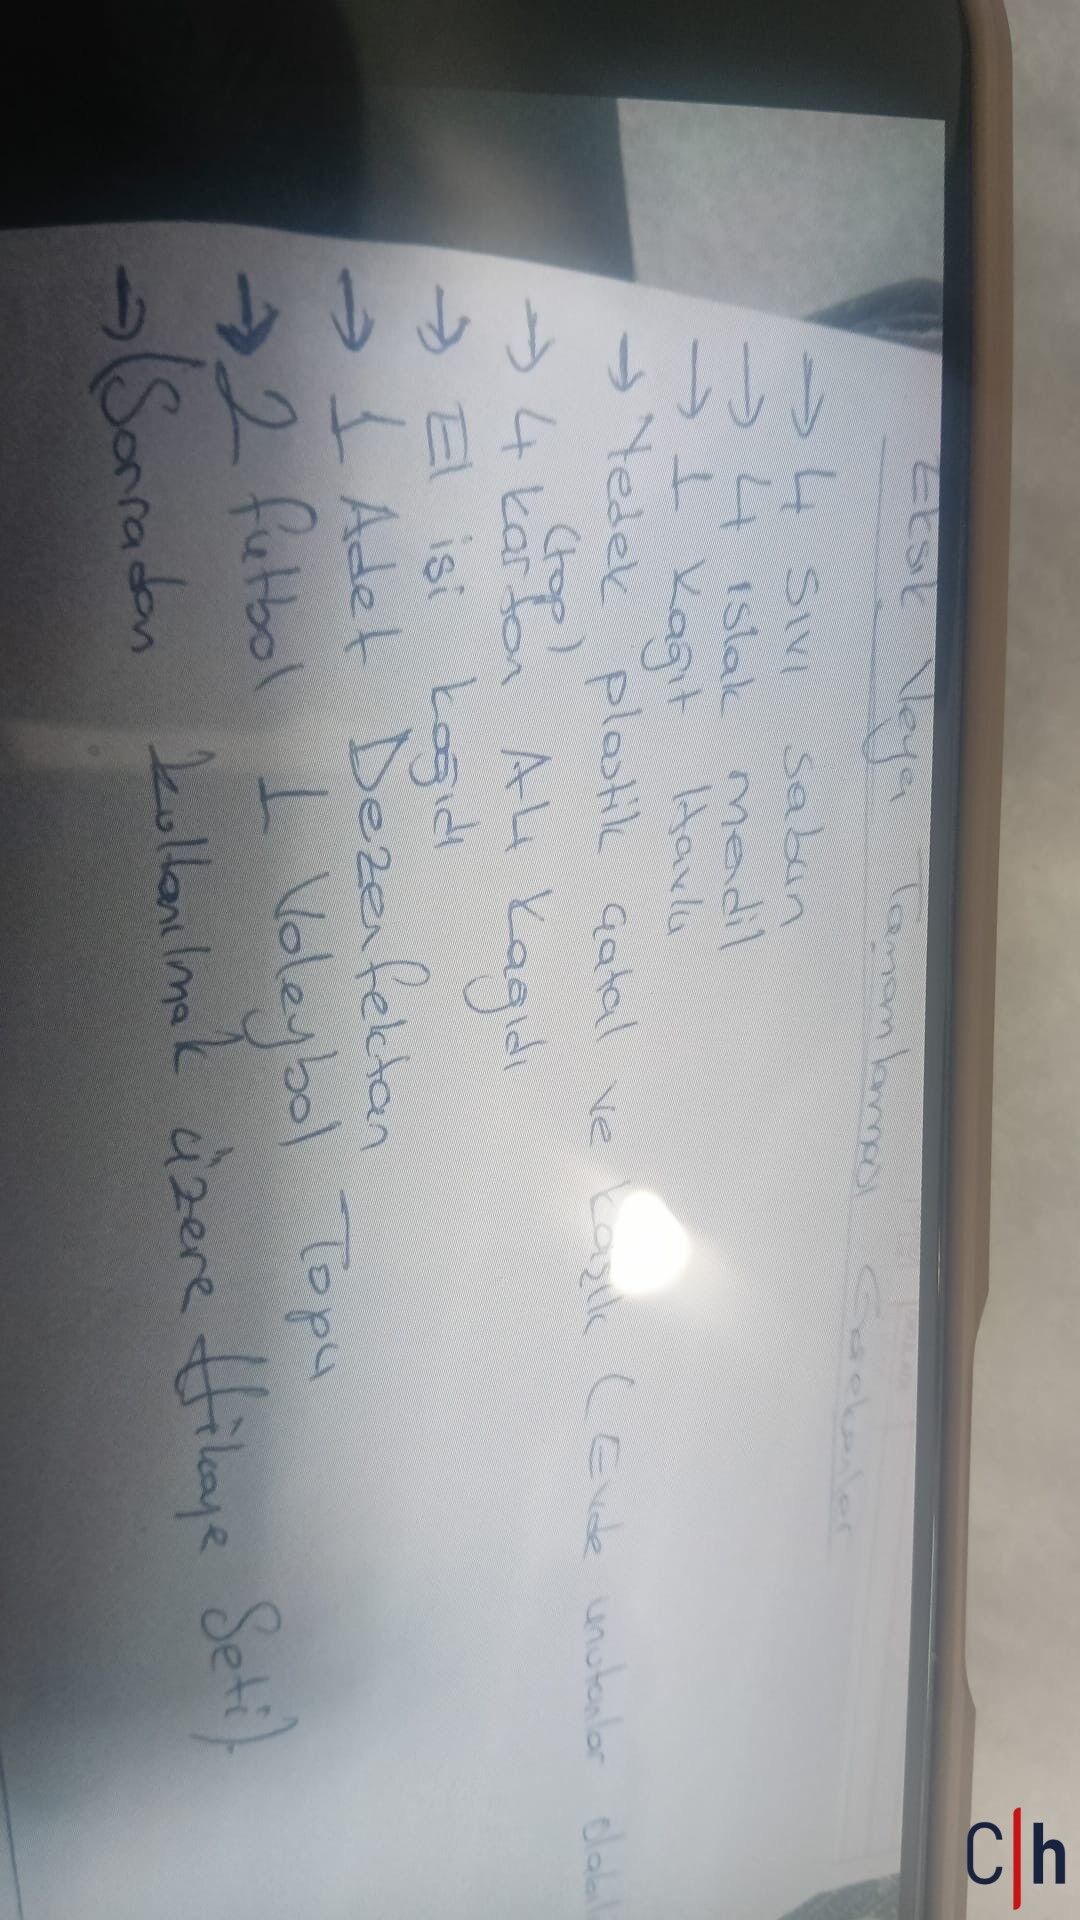 Eksik Veya Tamamlaması Gerekenler
→ 4 Sıvı sabun
→ 4 ıslak mendil
→ 1 Kağıt Havlu
→ Yedek plastik çatal ve kaşık (Evde unutanlar
(top)
→ 4 karton A4 kağıdı
→ El işi kağıdı
→ 1 Adet Dezenfektan
→ 2 futbol 1 Voleybol Topu
→ (Sonradan kullanılmak üzere Hikaye Seti).
C|h